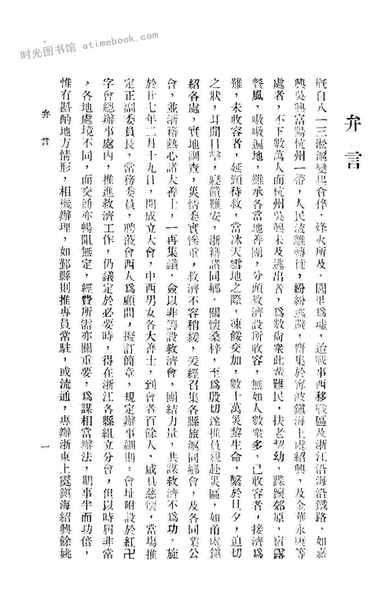 时光图书馆 atimebook.com
弁言
溯自八一三淞滬變起倉猝，烽火所及，閭里爲墟，迨戰事西移戰區及浙江沿海沿鐵路，如嘉
興吳興富陽杭州一帶，人民流離轉徙，紛紛逃避，齊集於甯波鎮海上虞紹興，及金華永康等
處者，不下數萬人而杭州吳興未及逃出者，爲數尚衆此輩難民，扶老携幼，蹀躞郊原，宿露
餐風，嗷嗷遍地，雖承各當地善團，分頭救濟設所收容，無如人數衆多，已收容者，接濟爲
難，未收容者，延頸待救，當冰天雪地之際，凍餒交加，數十萬災黎生命，繫於旦夕，迫切
之狀，耳聞目擊，寢饋難安，浙籍諸同鄉，關懷桑梓，至爲殷切遂推員視赴災區，如甬處鎮
紹各處，實地調查，災情委實慘重，救濟不容稍緩，爰經召集各縣旅滬同鄉會，及各同業公
會，並浙籍熱心諸大善士，一再集議，僉以非籌設救濟會，團結力量，共謀救濟不爲功，施
於廿七年二月十九日，開成立大會，中西男女各大善士，到會者百餘人，咸具慈懷，當場推
定正副委員長，常務委員，聘敦會西人爲顧問，擬訂簡章，規定辦事細則，會址附設於紅卍
字會總辦事處內，推進救濟工作，仍議定於必要時，得在浙江各縣組立分會，但以時届非常
，各地處境不同，而交通亦暢阻無定，經費所需亦關重要，爲謀相當辦法，期事半而功倍，
惟有斟酌地方情形，相機辦理，如鄞縣則推專員常駐，或流通，專辦浙東上虞鎮海紹興餘姚
弁言
一